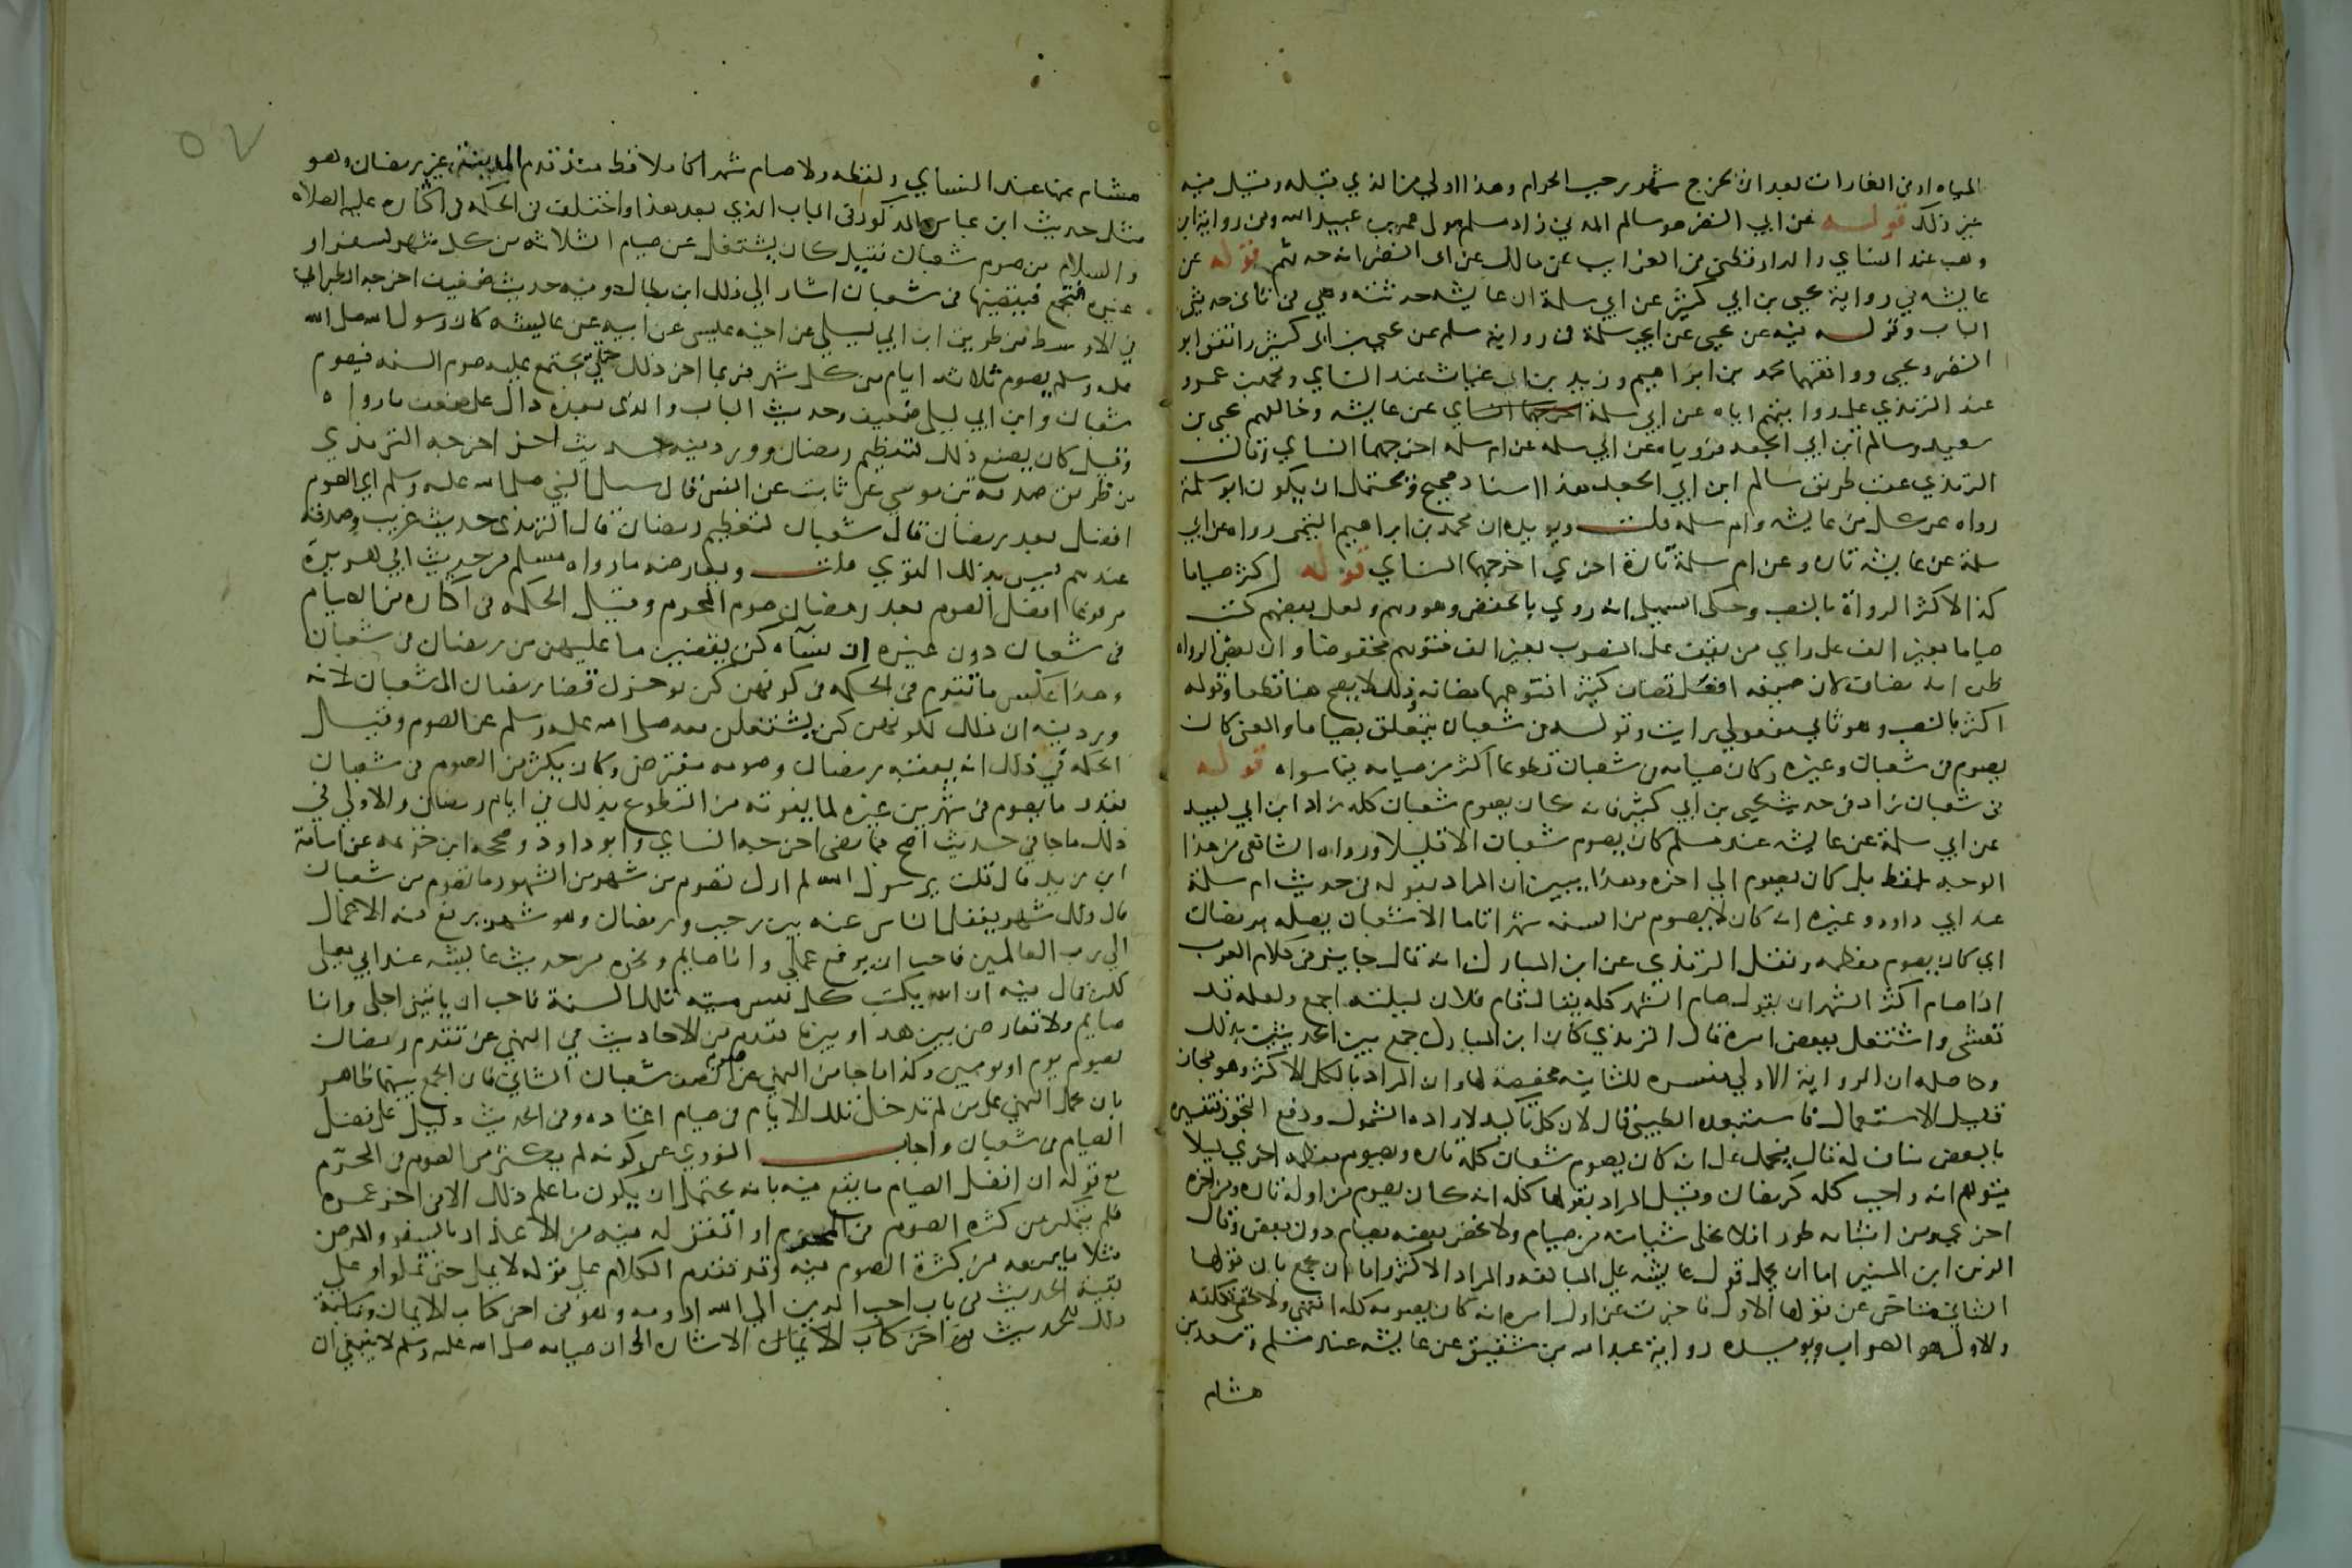 المياه او في الغارات بعد ان يخرج شهر رجب الحرام وهذا اولي من الذي قبله وقيل فيه
غير ذلك قوله عن ابي النضر هو سالم المدني زاد مسلم مولي عمر بن عبيد الله وفي رواية ابن
وهب عند النساي والدارقطني في الغرايب عن مالك عن ابي النضر انه حدثهم قوله عن
عايشه في رواية يحيي بن ابي كثير عن ابي سلمة ان عايشه حدثته وهي في ثاني حديثي
الباب وقوله فيه عن يحيي عن ابي سلمة في رواية مسلم عن يحيي بن ابي كثير واتفق ابو
النضر ويحيي ووافقهما محمد بن ابراهيم وزيد بن ابي غياث عند النساي ومحمد بن عمرو
عند الترمذي علي روايتهم اياه عن ابي سلمة عن عايشه وخالفهم يحيي بن
سعيد وسالم ابن ابي الجعد فروياه عن ابي سلمه عن ام سلمه اخرجهما النساي وقال
الترمذي عقب طريق سالم ابن ابي الجعد هذا اسناد صحيح ويحتمل ان يكون ابو سلمة
رواه عن كل من عايشه وام سلمه قلت ويويده ان محمد بن ابراهيم التيمي رواه عن ابي
سلمة عن عايشه تاره وعن ام سلمة تارة اخري اخرجهما النساي قوله اكثر صياما
كذا لاكثر الرواة بالنصب وحكي السهيلي انه روي بالخفض وهو وهم ولعل بعضهم كتب
صياما بغير الف علي راي من يقف علي المنصوب بغير الف فتوهم مخفوضا وان بعض الرواه
ظن انه مضاف لان صيغه افعل تضاف كثيرا فتوهمها مضافه وذلك لا يصح هنا قطعا وقوله
اكثر بالنصب وهو ثاني مفعولي رايت وقوله من شعبان يتعلق بصياما والمعني كان
يصوم في شعبان وغيره وكان صيامه في شعبان تطوعا اكثر من صيامه فيما سواه قوله
من شعبان زاد في حديث يحيي بن ابي كثير فانه كان يصوم شعبان كله زاد ابن ابي لبيد
عن ابي سلمة عن عايشه عند مسلم كان يصوم شعبان الا قليلا ورواه الشافعي من هذا
الوجه بلفظ بل كان يصوم الي اخره وهذا يبين ان المراد بقوله في حديث ام سلمة
عند ابي داود وغيره انه كان لا يصوم من السنه شهرا تاما الا شعبان يصله برمضان
اي كان يصوم معظمه ونقل الترمذي عن ابن المبارك انه قال جايز في كلام العرب
اذا صام اكثر الشهر ان يقول صام الشهر كله يقال قام فلان ليلته اجمع ولعله قد
تعشي واشتغل ببعض امره قال الترمذي كان ابن المبارك جمع بين الحديثين بذلك
وحاصله ان الرواية الاولي مفسره للثانيه مخصصة لها وان المراد بالكل الاكثر وهو مجاز
قليل الاستعمال فاستبعده الطيبي قال لان كل تاكيد لاراده الشمول ودفع التجوز فتفسيره
بالبعض مناف له قال فيحمل علي انه كان يصوم شعبان كله تاره ويصوم معظمه اخري ليلا
يتوهم انه واجب كله كرمضان وقيل المراد بقولها كله انه كان يصوم من اوله تاره ومن اخره
اخري ومن اثنايه طورا فلا يخلي شيا منه من صيام ولا يخص بعضه بصيام دون بعض وقال
الزين ابن المنير اما ان يحمل قول عايشه علي المبالغه والمراد الاكثر واما ان يجمع بان قولها
الثاني متاخر عن قولها الاول فاخبرت عن اول امره انه كان يصومه كله انتهي ولا يخفي تكلفه
والاول هو الصواب ويويده رواية عبد الله بن شقيق عن عايشه عند مسلم وسعد بن
هشام
٥٧
هشام عنها عند النساي ولفظه ولا صام شهرا كاملا قط منذ قدم المدينة غير رمضان وهو
مثل حديث ابن عباس المذكور في الباب الذي بعد هذا واختلف في الحكمه في اكثاره عليه الصلاه
والسلام من صوم شعبان فقيل كان يشتغل عن صيام الثلاثه من كل شهر لسفر او
غيره فتجتمع فيقضيها في شعبان اشار الي ذلك ابن بطال وفيه حديث ضعيف اخرجه الطبراني
في الاوسط من طريق ابن ابي ليلي عن اخيه عيسي عن ابيه عن عايشه كان رسول الله صلي الله
عليه وسلم يصوم ثلاثه ايام من كل شهر فربما اخر ذلك حتي يجتمع عليه صوم السنه فيصوم
شعبان وابن ابي ليلي ضعيف وحديث الباب والذي بعده دال علي ضعف ما رواه
وقيل كان يصنع ذلك لتعظيم رمضان وورد فيه حديث اخر اخرجه الترمذي
من طريق صدقه بن موسي عن ثابت عن انس قال سيل النبي صلي الله عليه وسلم اي الصوم
افضل بعد رمضان قال شعبان لتعظيم رمضان قال الترمذي حديث غريب وصدقه
عندهم ليس بذلك القوي قلت ويعارضه ما رواه مسلم من حديث ابي هريرة
مرفوعا افضل الصوم بعد رمضان صوم المحرم وقيل الحكمه في اكثاره من الصيام
في شعبان دون غيره ان نساه كن يقضين ما عليهن من رمضان في شعبان
وهذا عكس ما تقدم في الحكمه في كونهن كن يوخرن قضا رمضان الي شعبان لانه
ورد فيه ان ذلك لكونهن كن يشتغلن معه صلي الله عليه وسلم عن الصوم وقيل
الحكمه في ذلك انه يعقبه رمضان وصومه مفترض وكان يكثر من الصوم في شعبان
بقدر ما يصوم في شهرين غيره لما يفوته من التطوع بذلك في ايام رمضان والاولي في
ذلك ما جا في حديث اصح مما مضي اخرجه النساي وابو داود وصححه ابن خزيمه عن اسامة
ابن زيد قال قلت يا رسول الله لم ارك تصوم من شهر من الشهور ما تصوم من شعبان
قال ذلك شهر يغفل الناس عنه بين رجب ورمضان وهو شهر يرفع فيه الاعمال
الي رب العالمين فاحب ان يرفع عملي وانا صايم ونحوه من حديث عايشه عند ابي يعلي
لكن قال فيه ان الله يكتب كل نفس ميته تلك السنة فاحب ان ياتيني اجلي وانا
صايم ولا تعارض بين هذا وبين ما تقدم من الاحاديث في النهي عن تقدم رمضان
بصوم يوم او يومين وكذا ما جا من النهي عن صوم نصف شعبان الثاني فان الجمع بينهما ظاهر
بان يحمل النهي علي من لم تدخل تلك الايام في صيام اعتاده وفي الحديث دليل علي فضل
الصيام في شعبان واجاب النووي عن كونه لم يكثر من الصوم في المحرم
مع قوله ان افضل الصيام ما يقع فيه بانه يحتمل ان يكون ما علم ذلك الا في اخر عمره
فلم يتمكن من كثره الصوم في المحرم او اتفق له فيه من الاعذار بالسفر والمرض
مثلا ما منعه من كثرة الصوم فيه وقد تقدم الكلام علي قوله لا يمل حتي تملوا وعلي
بقية الحديث في باب احب الدين الي الله ادومه وهو في اخر كتاب الايمان ومناسبة
ذلك للحديث في اخر كتاب الايمان الاشاره الي ان صيامه صلي الله عليه وسلم لا ينبغي ان